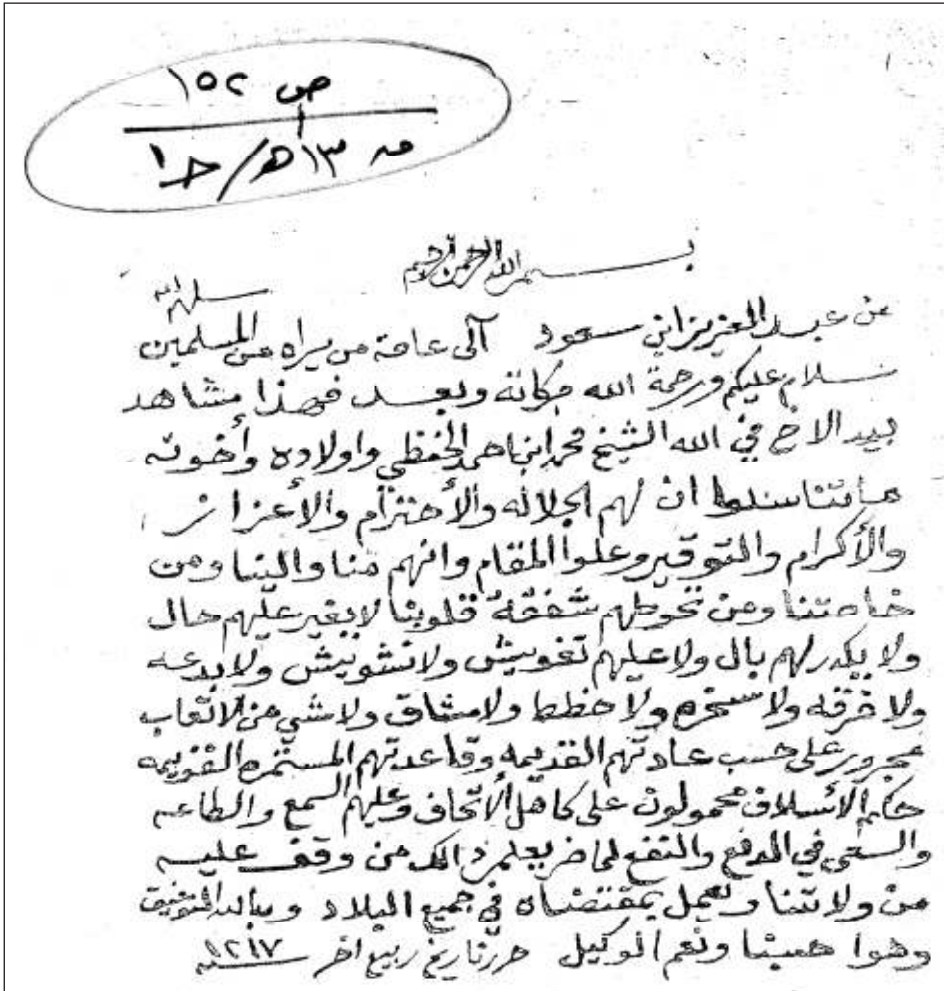 ص ١٥٢
م ١٣ هـ / ح ١
بسم الله الرحمن الرحيم
سلمهم الله
من عبد العزيز ابن سعود الى عامة من يراه من المسلمين
سلام عليكم ورحمة الله وبركاته وبعد فهذا مشاهد
بيد الاخ في الله الشيخ محمد ابن احمد الحفظي واولاده وأخوته
ان لهم الجلاله والأحترام والأعزاز
والأكرام والتوقير وعلوا المقام وانهم منا والينا ومن
خاصتنا ومن تحوطهم شفقة قلوبنا لا يغير عليهم حال
ولا يكدر لهم بال ولا عليهم تغويش ولا تشويش ولا بدعه
ولا فرقه ولا سخره ولا خطط ولا مشاق ولا شي من الاتعاب
على حسب عادتهم القديمه وقاعدتهم المستمره القويمه
حكم الائسلاف محمولون على كاهل ألاتحاف وعليهم السمع والطاعه
والسعي في الدفع والنفع يعلم ذالك من وقف عليه
من ولاتنا ويعمل بمقتضاه في جميع البلاد وبالله التوفيق
وهوا حسبنا ونعم الوكيل حرر تاريخ ربيع اخر سنه ١٢١٧